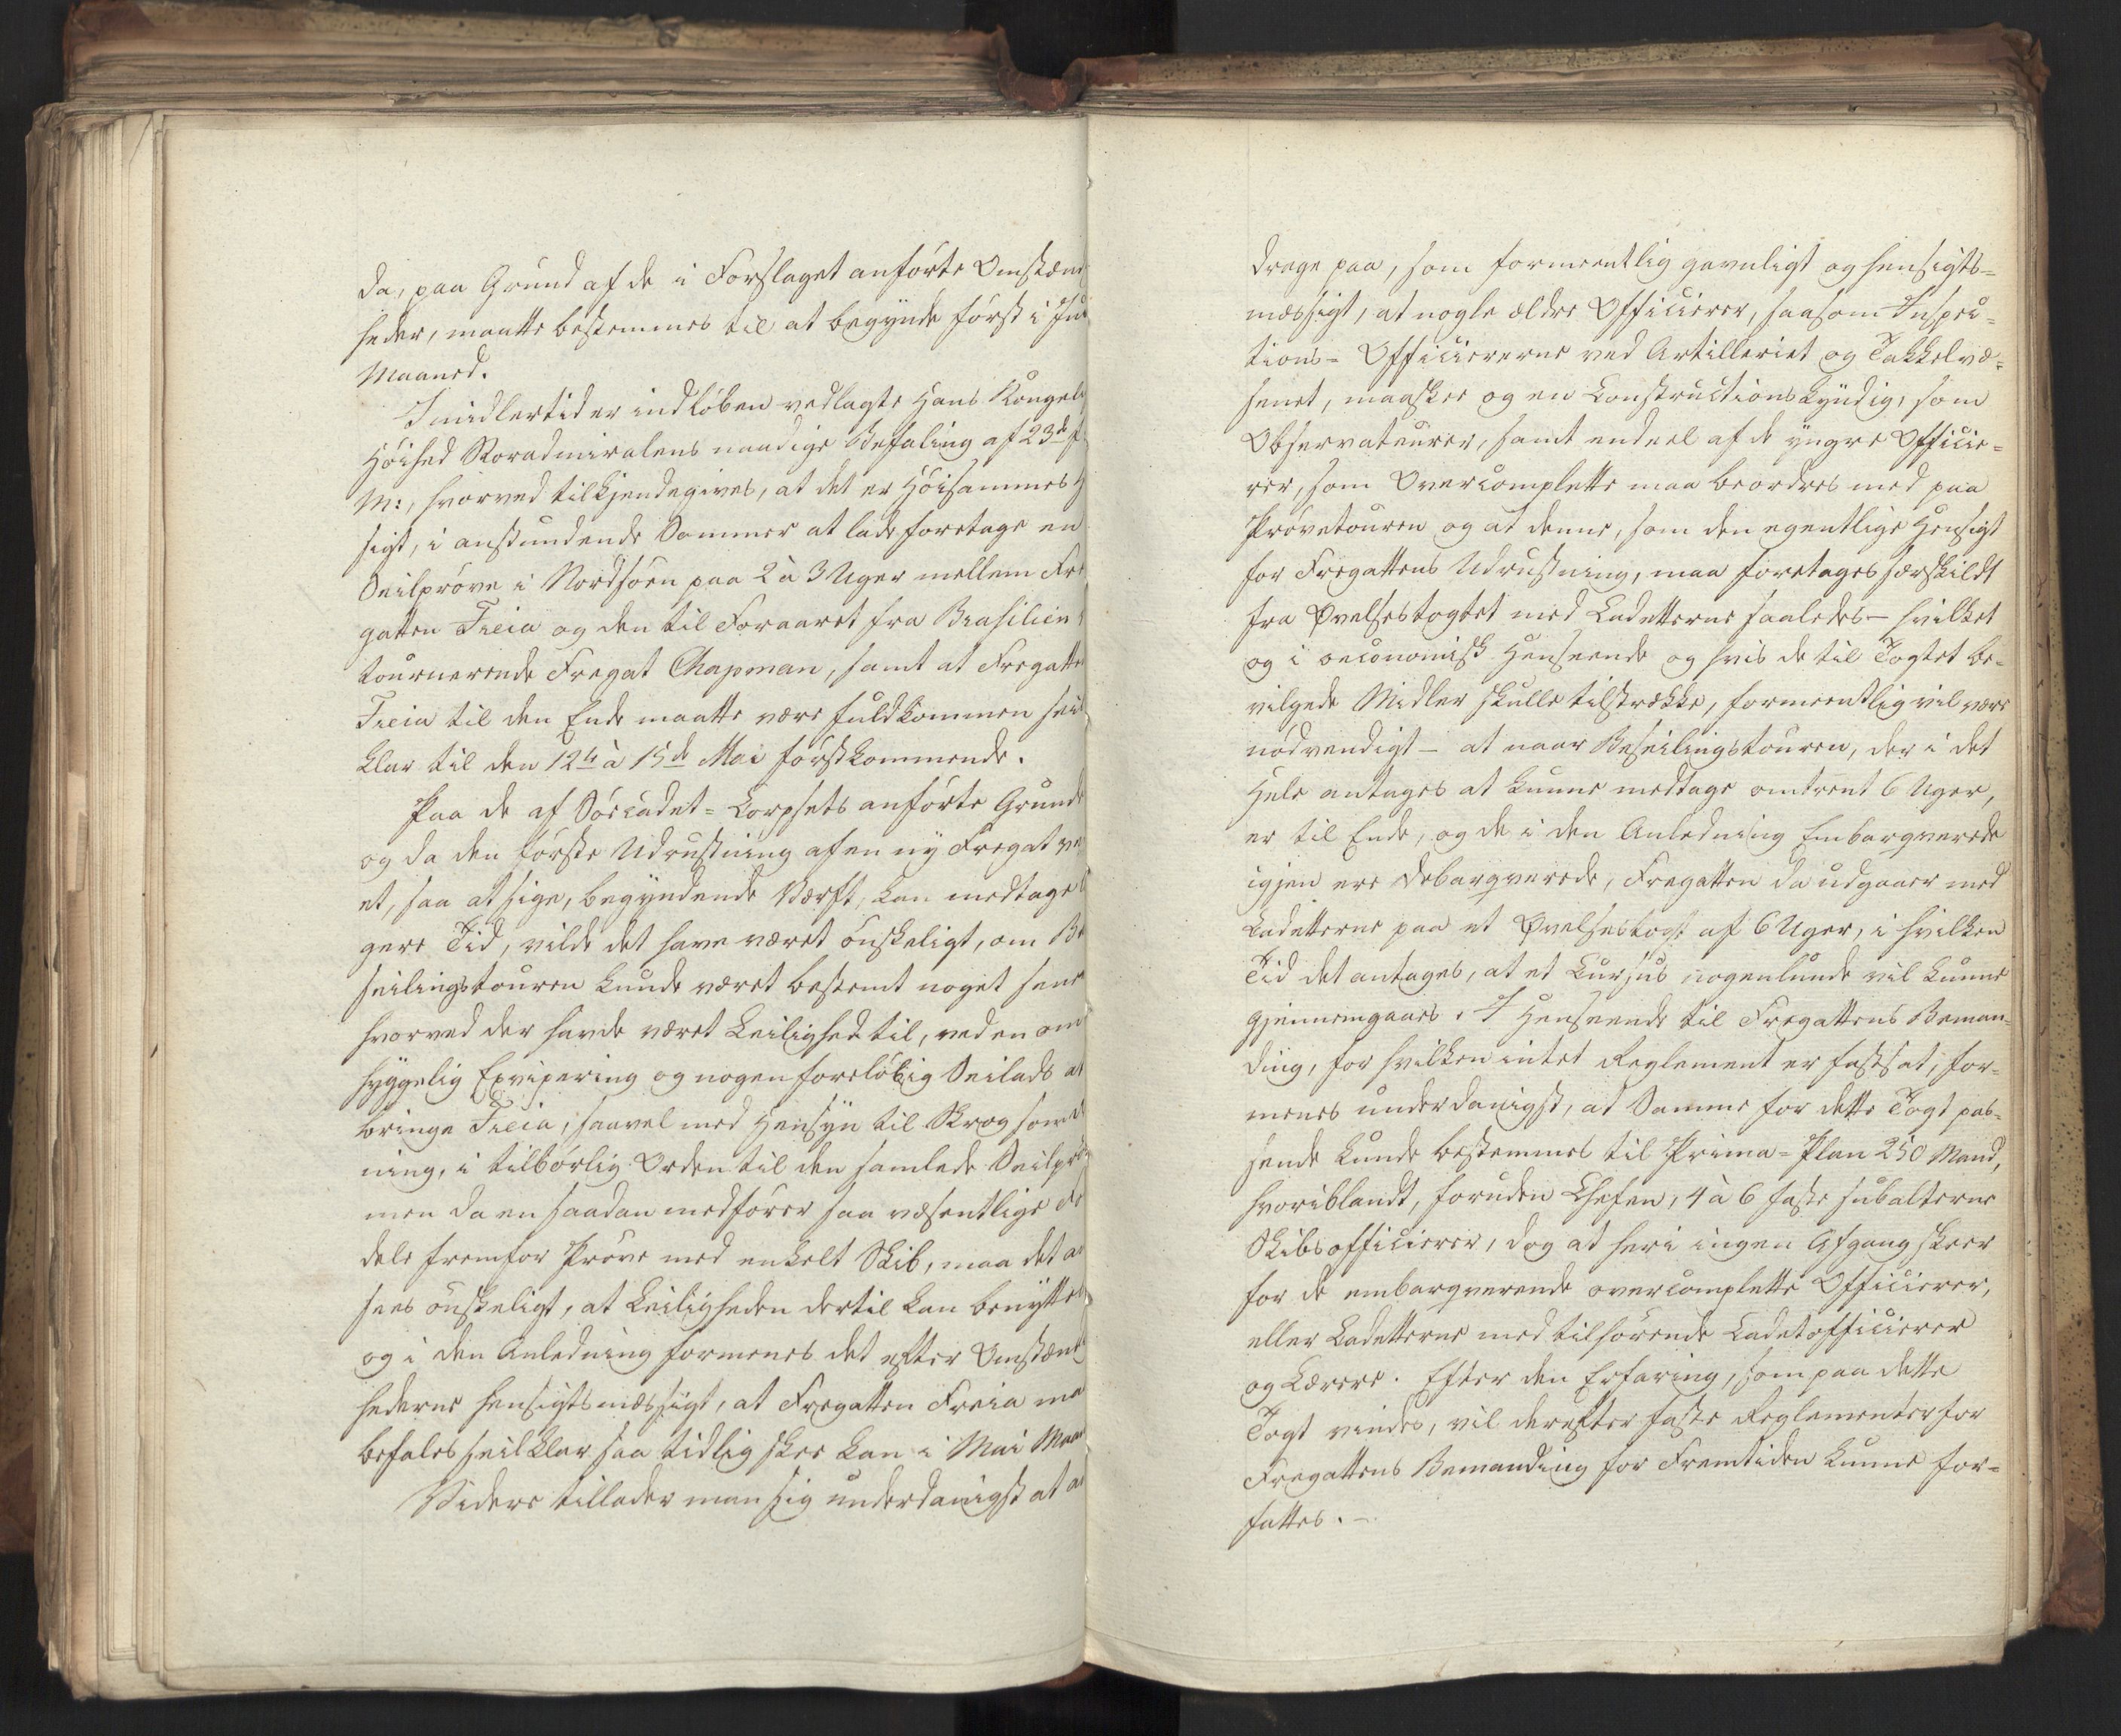 da, paa Grund af de i Forslaget anförte Omstæn
heder, maatte bestemmes til at begynde först i Ju
Maaned.
Imidlertid er indlöben vedlagte Hans Kongel
Höihed Storadmiralens naadige Befaling af 23de f.
M:, hvorved tilkjendegives, at det er Höisammes H
sigt, i anstundende Sommer at lade foretage en
Seilpröve i Nordsöen paa 2 à 3 Uger mellem Fre
gatten Freia og den til Foraaret fra Brasilien
tournerende Fregat Chapman, samt at Fregatte
Freia til den Ende maatte være fuldkommen seil
klar til den 12te à 15de Mai förstkommende.
Paa de af Söecadet-Corpsets anförte Grunde
og da den förste Udrustning af en ny Fregat ve
et, saa at sige, begyndende Værft, kan medtage
gere Tid, vilde det have været önskeligt, om Be
seilingstouren kunde været bestemt noget sene
hvorved der havde været Leilighed til, ved en om
hyggelig Eqvipering og nogen forelöbig Seilads at
bringe Freia, saavel med Hensyn til Skrog som
ning, i tilbörlig Orden til den samlede Seilprö
men da en saadan medförer saa væsentlige
dele fremfor Pröve med enkelt Skib, maa det an
sees önskeligt, at Leiligheden dertil kan benyttes
og i den Anledning formenes det efter Omstænd
hederne hensigtsmæssigt, at Fregatten Freia ma
befales seilklar saa tidlig skee kan i Mai Maan
Videre tillader man sig underdanigst at an
drage paa, som formeentlig gavnligt og hensigts-
mæssigt, at nogle ældre Officierer, saasom Inspec-
tions-Officiererne ved Artilleriet og Takkelvæ-
senet, maaskee og en Constructionskyndig, som
Observateurer, samt endeel af de yngre Officie-
rer, som Overcomplette maa beordres med paa
Prövetouren og at denne, som den egentlige Hensigt
for Fregattens Udrustning, maa foretages særskildt
fra Øvelsestogtet med Cadetterne saaledes – hvilket
og i oeconomisk Henseende og hvis de til Togtet be-
vilgede Midler skulle tilstrække, formeentlig vil være
nödvendigt – at naar Beseilingstouren, der i det
Hele antages at kunne medtage omtrent 6 Uger,
er til Ende, og de i den Anledning Embarqverede
igjen ere debarqverede, Fregatten da udgaaer med
Cadetterne paa et Øvelsestogt af 6 Uger, i hvilken
Tid det antages, at et Cursus nogenlunde vil kunne
gjennemgaaes. I Henseende til Fregattens Beman-
ding, for hvilken intet Reglement er fastsat, for-
menes underdanigst, at Samme for dette Togt pas-
sende kunde bestemmes til Prima-Plan 250 Mand,
hvoriblandt, foruden Chefen, 4 à 6 faste subalterne
Skibsofficierer, dog at heri ingen Afgang skeer
for de embarqverende overcomplette Officierer,
eller Cadetterne med tilhörende Cadetofficierer
og Lærere. Efter den Erfaring, som paa dette
Togt vindes, vil derefter faste Reglementer for
Fregattens Bemanding for Fremtiden kunne for-
fattes. –